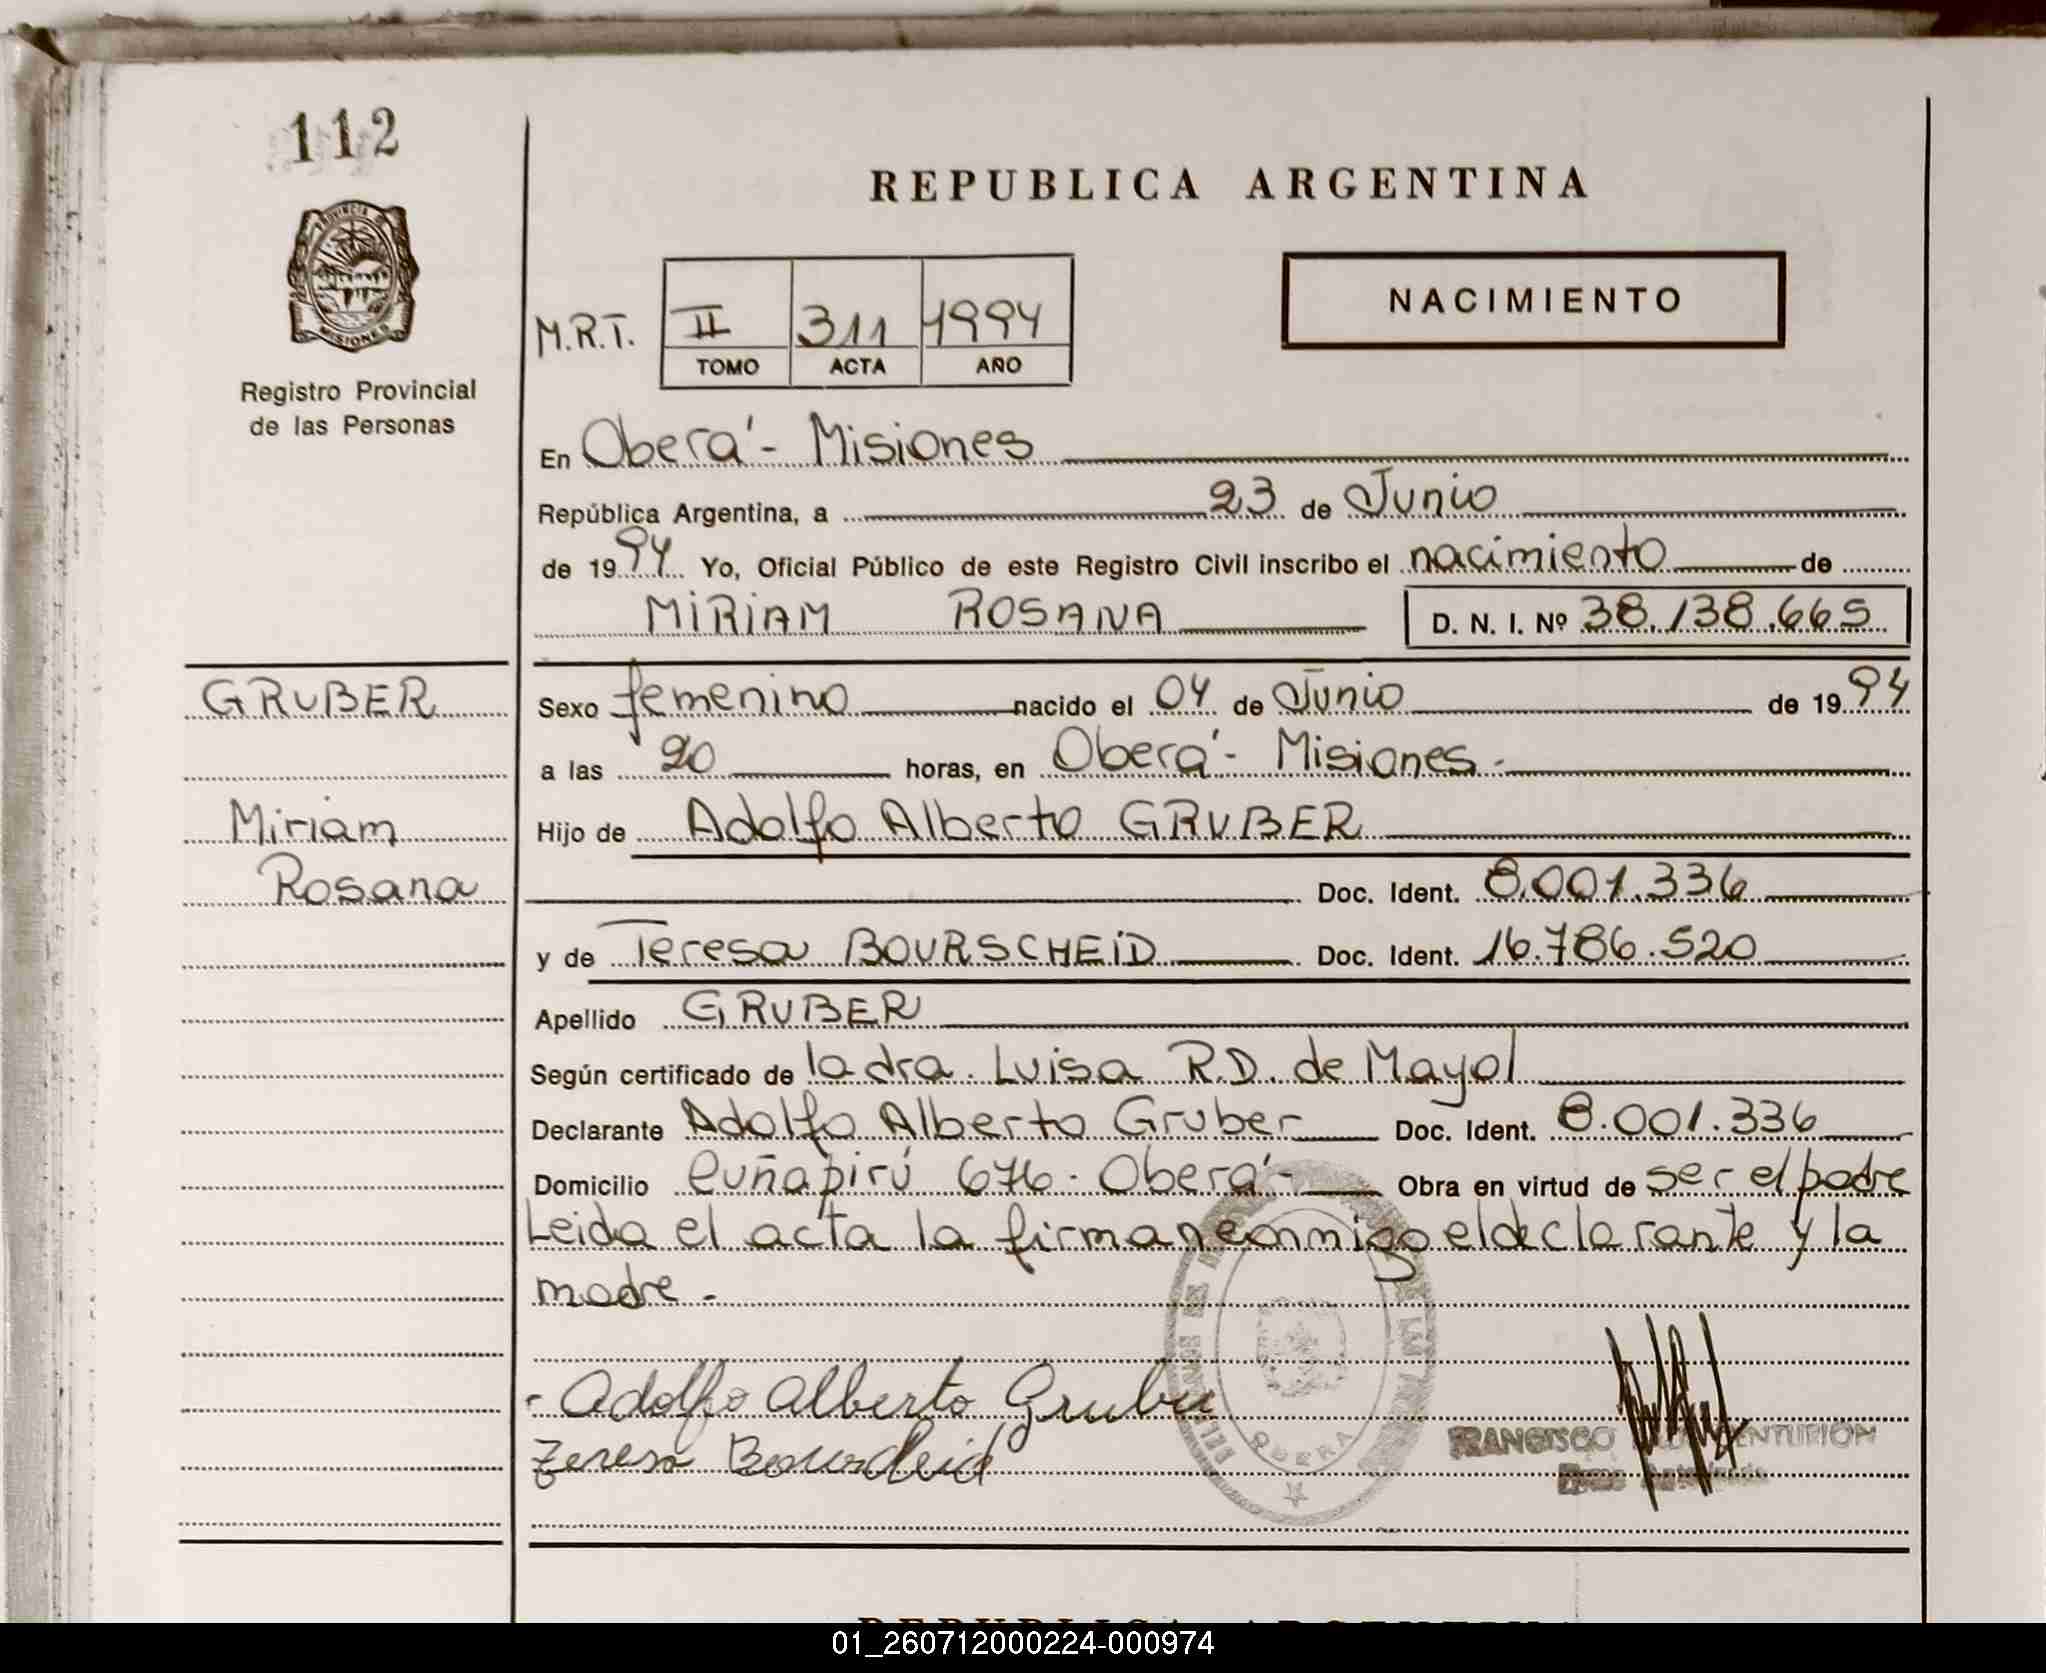 112
PROVINCIA DE
MISIONES
Registro Provincial
de las Personas
REPUBLICA ARGENTINA
NACIMIENTO
M.R.T. II 311 1994
TOMO ACTA AÑO
En Oberá - Misiones
República Argentina, a 23 de Junio
de 1994 Yo, Oficial Público de este Registro Civil inscribo el nacimiento de
MIRIAM ROSANA D. N. I. Nº 38.138.665
GRUBER
Miriam
Rosana
Sexo femenino nacido el 04 de Junio de 1994
a las 20 horas, en Oberá - Misiones.
Hijo de Adolfo Alberto GRUBER
Doc. Ident. 8.001.336
y de Teresa BOURSCHEID Doc. Ident. 16.786.520
Apellido GRUBER
Según certificado de la dra. Luisa R.D. de Mayol
Declarante Adolfo Alberto Gruber Doc. Ident. 8.001.336
Domicilio Cuñapirú 676 - Oberá - Obra en virtud de ser el padre
Leida el acta la firman conmigo el declarante y la
madre.
Adolfo Alberto Gruber
Teresa Bourscheid
OBERA
FRANCISCO CENTURION
01_260712000224-000974